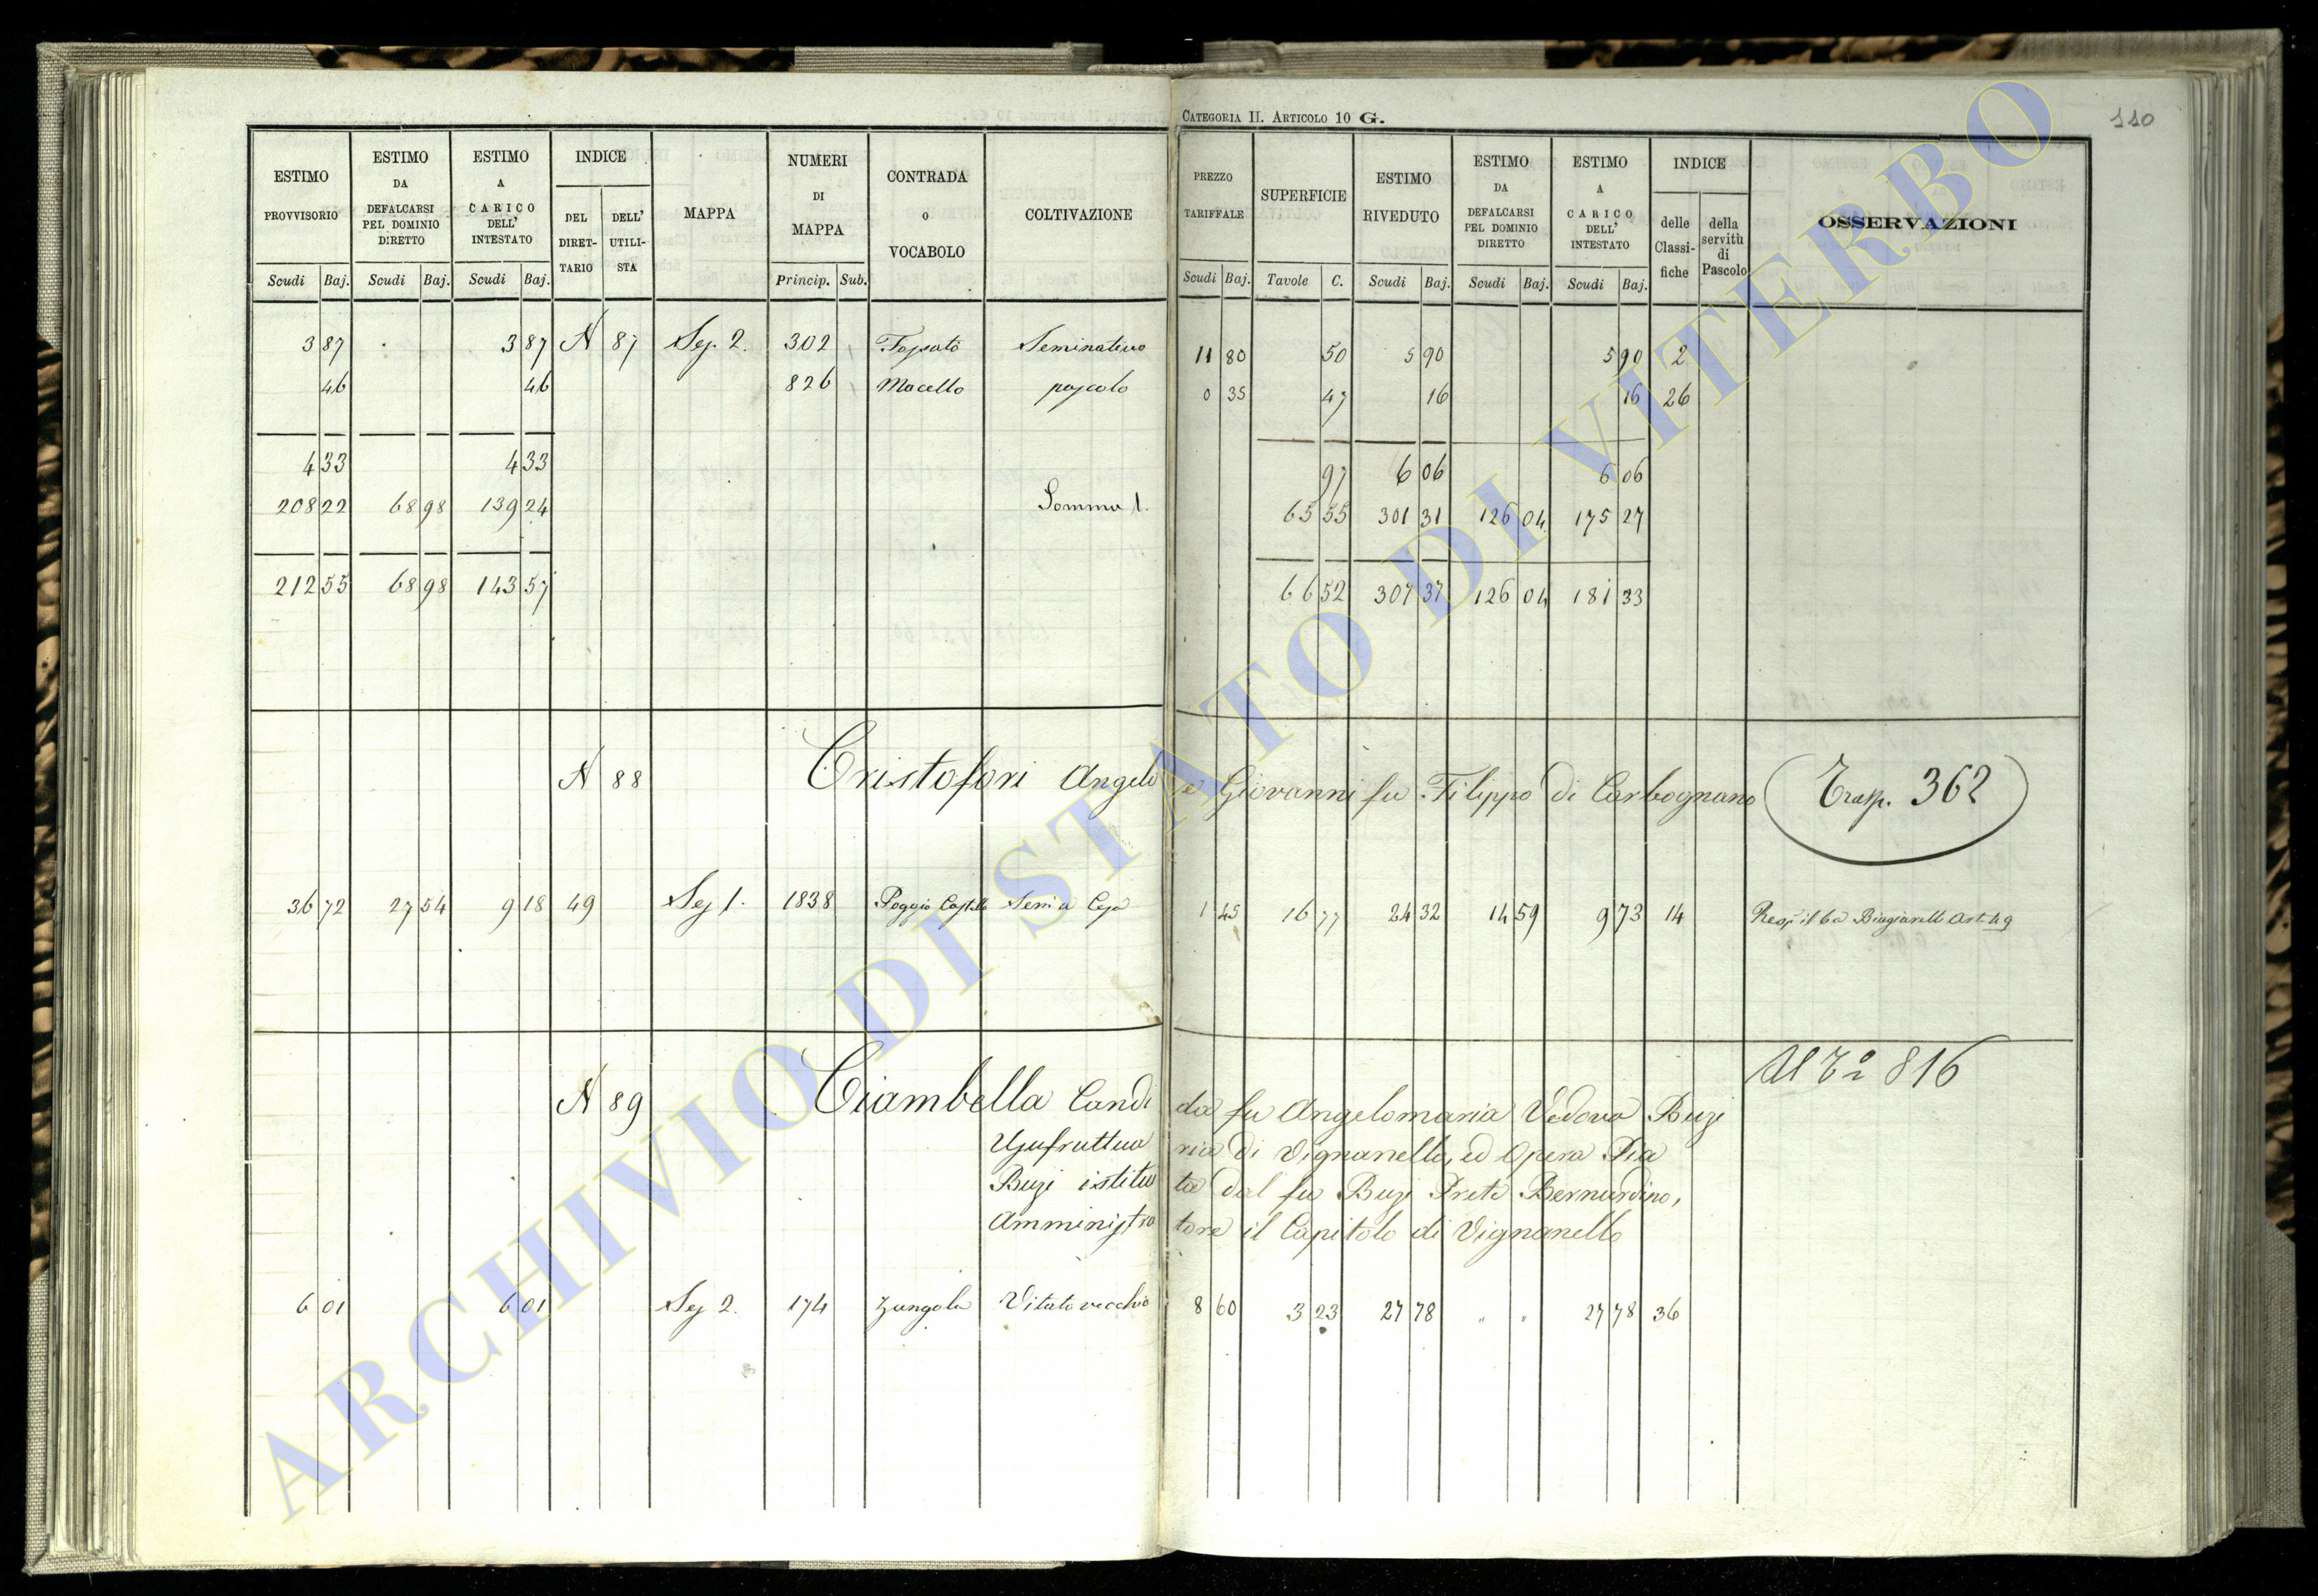 CATEGORIA II. ARTICOLO 10 G.
110
ESTIMO PROVVISORIO Scudi Baj.
ESTIMO DA DEFALCARSI PEL DOMINIO DIRETTO Scudi Baj.
ESTIMO A CARICO DELL' INTESTATO Scudi Baj.
INDICE DEL DIRETTARIO DELL' UTILISTA
MAPPA
NUMERI DI MAPPA Princip. Sub.
CONTRADA o VOCABOLO
COLTIVAZIONE
PREZZO TARIFFALE Scudi Baj.
SUPERFICIE Tavole C.
ESTIMO RIVEDUTO Scudi Baj.
ESTIMO DA DEFALCARSI PEL DOMINIO DIRETTO Scudi Baj.
ESTIMO A CARICO DELL' INTESTATO Scudi Baj.
INDICE delle Classifiche della servitù di Pascolo
OSSERVAZIONI
3 87 3 87 N 87 Sez 2. 302 Seminativo 11 80 50 5 90 5 90 2
46 46 826 Macello pascolo 0 35 47 16 16 26
4 33 4 33 97 6 06 6 06
208 22 68 98 139 24 Somma 1. 65 55 301 31 126 04 175 27
212 55 68 98 143 57 66 52 307 37 126 04 181 33
N 88 Cristofori Angelo e Giovanni fu Filippo di Carbognano Trasp. 362
36 72 27 54 9 18 49 Sez 1. 1838 Poggio Castello 1 45 16 77 24 32 14 59 9 73 14 Biagiarelli Art. 49
Al To 816
N 89 Ciambella Candida fu Angelomaria Vedova Buzi
Usufruttuaria di Vignanello, ed Opera Pia
Buzi istituta dal fu Buzi Prete Bernardino,
Amministratore il Capitolo di Vignanello
6 01 6 01 Sez 2. 174 Zangola Vitato vecchio 8 60 3 23 27 78 " " 27 78 36
ARCHIVIO DI STATO DI VITERBO